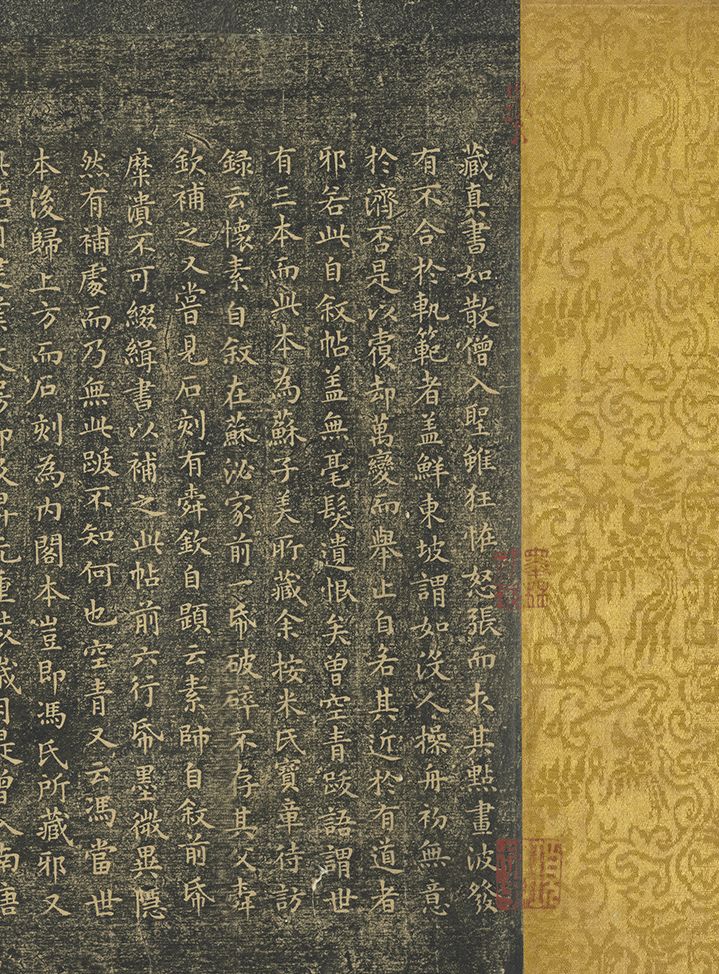 藏真書如散僧入聖雖狂怪怒張而求其點畫波發
有不合於軌範者盖鮮東坡謂如没人操舟初無意
於濟否是以覆却萬變而舉止自若其近於有道者
邪若此自叙帖盖無毫髮遺恨矣曽空青跋語謂世
有三本而此本為蘇子美所藏余按米氏寶章待訪
録云懷素自叙在蘇泌家前一帋破碎不存其父舜
欽補之又嘗見石刻有舜欽自題云素師自叙前帋
糜潰不可綴緝書以補之此帖前六行帋墨微異隱
然有補處而乃無此跋不知何也空青又云馮當世
本後歸上方而石刻為内閣本豈即馮氏所藏邪又